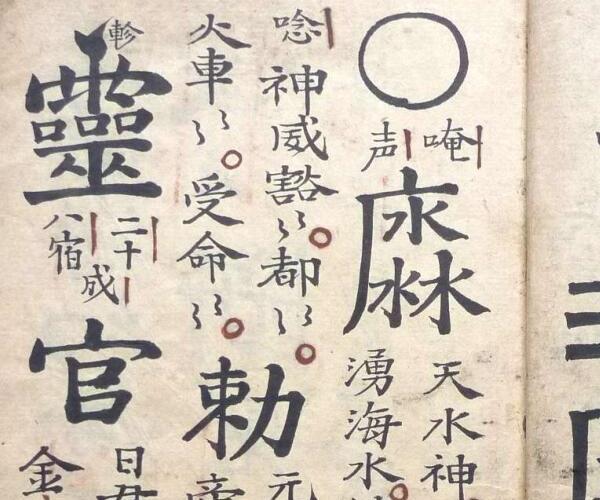 ○
唵
声
天水神
湧海水
唸
神威豁〻都〻
火車〻受命〻
勅
元
帝
軫
靈
二十
八宿
成
官
日
金